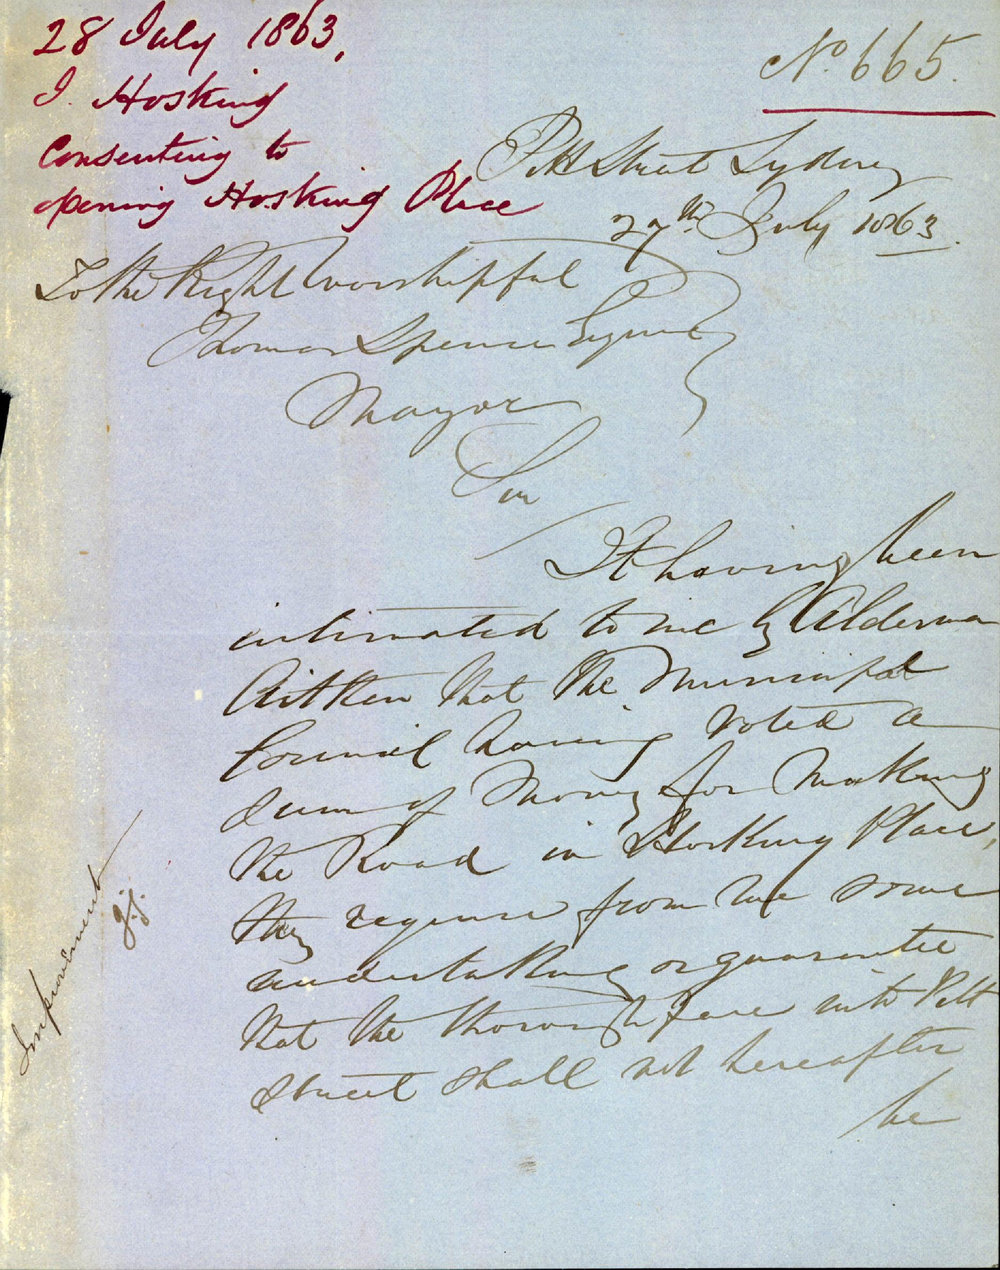 28 July 1863,
J. Hosking
Consenting to
opening Hosking Place
No. 665.
Pitt Street Sydney
27th July 1863.
To the Right Worshipful
Thomas Spence Esquire
Mayor
Sir
It having been
intimated to me by Alderman
Aitken that the Municipal
Council having voted a
sum of Money for Making
the Road in Hosking Place,
they require from me some
undertaking or guarantee
that the thoroughfare into Pitt
Street shall not hereafter
be
Improvement